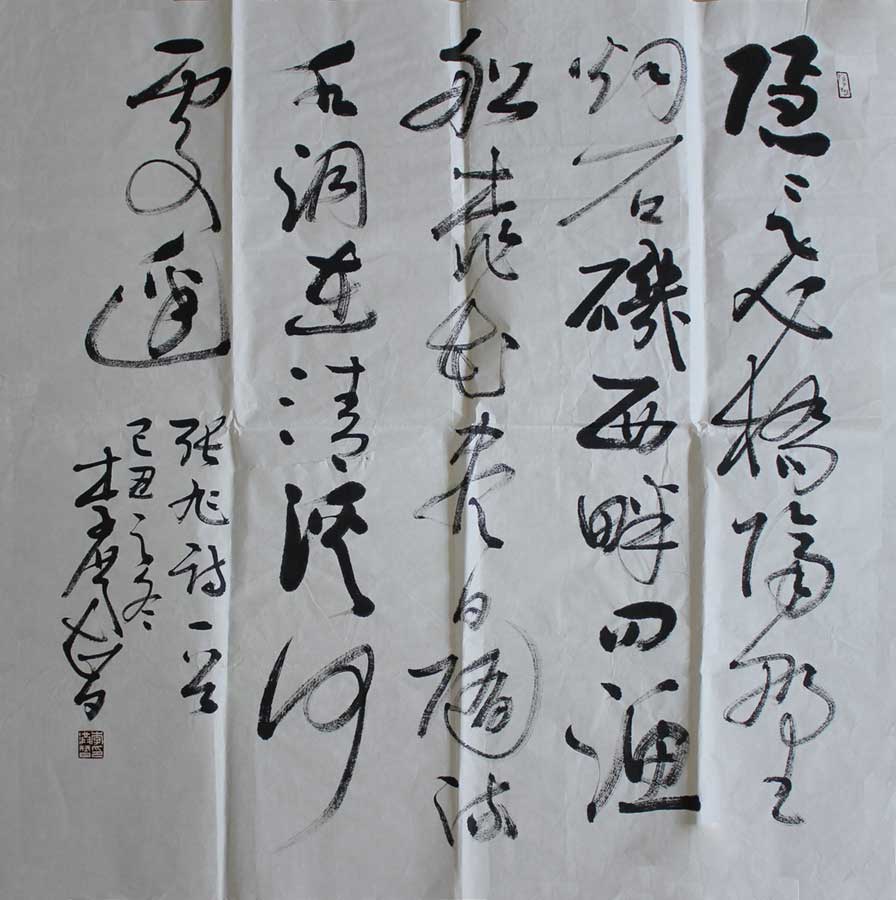 隐〻飞橋隔野
烟石磯西畔问渔
船桃花尽日随流
水洞在清溪何
處边
张旭诗一首
己丑之冬
李